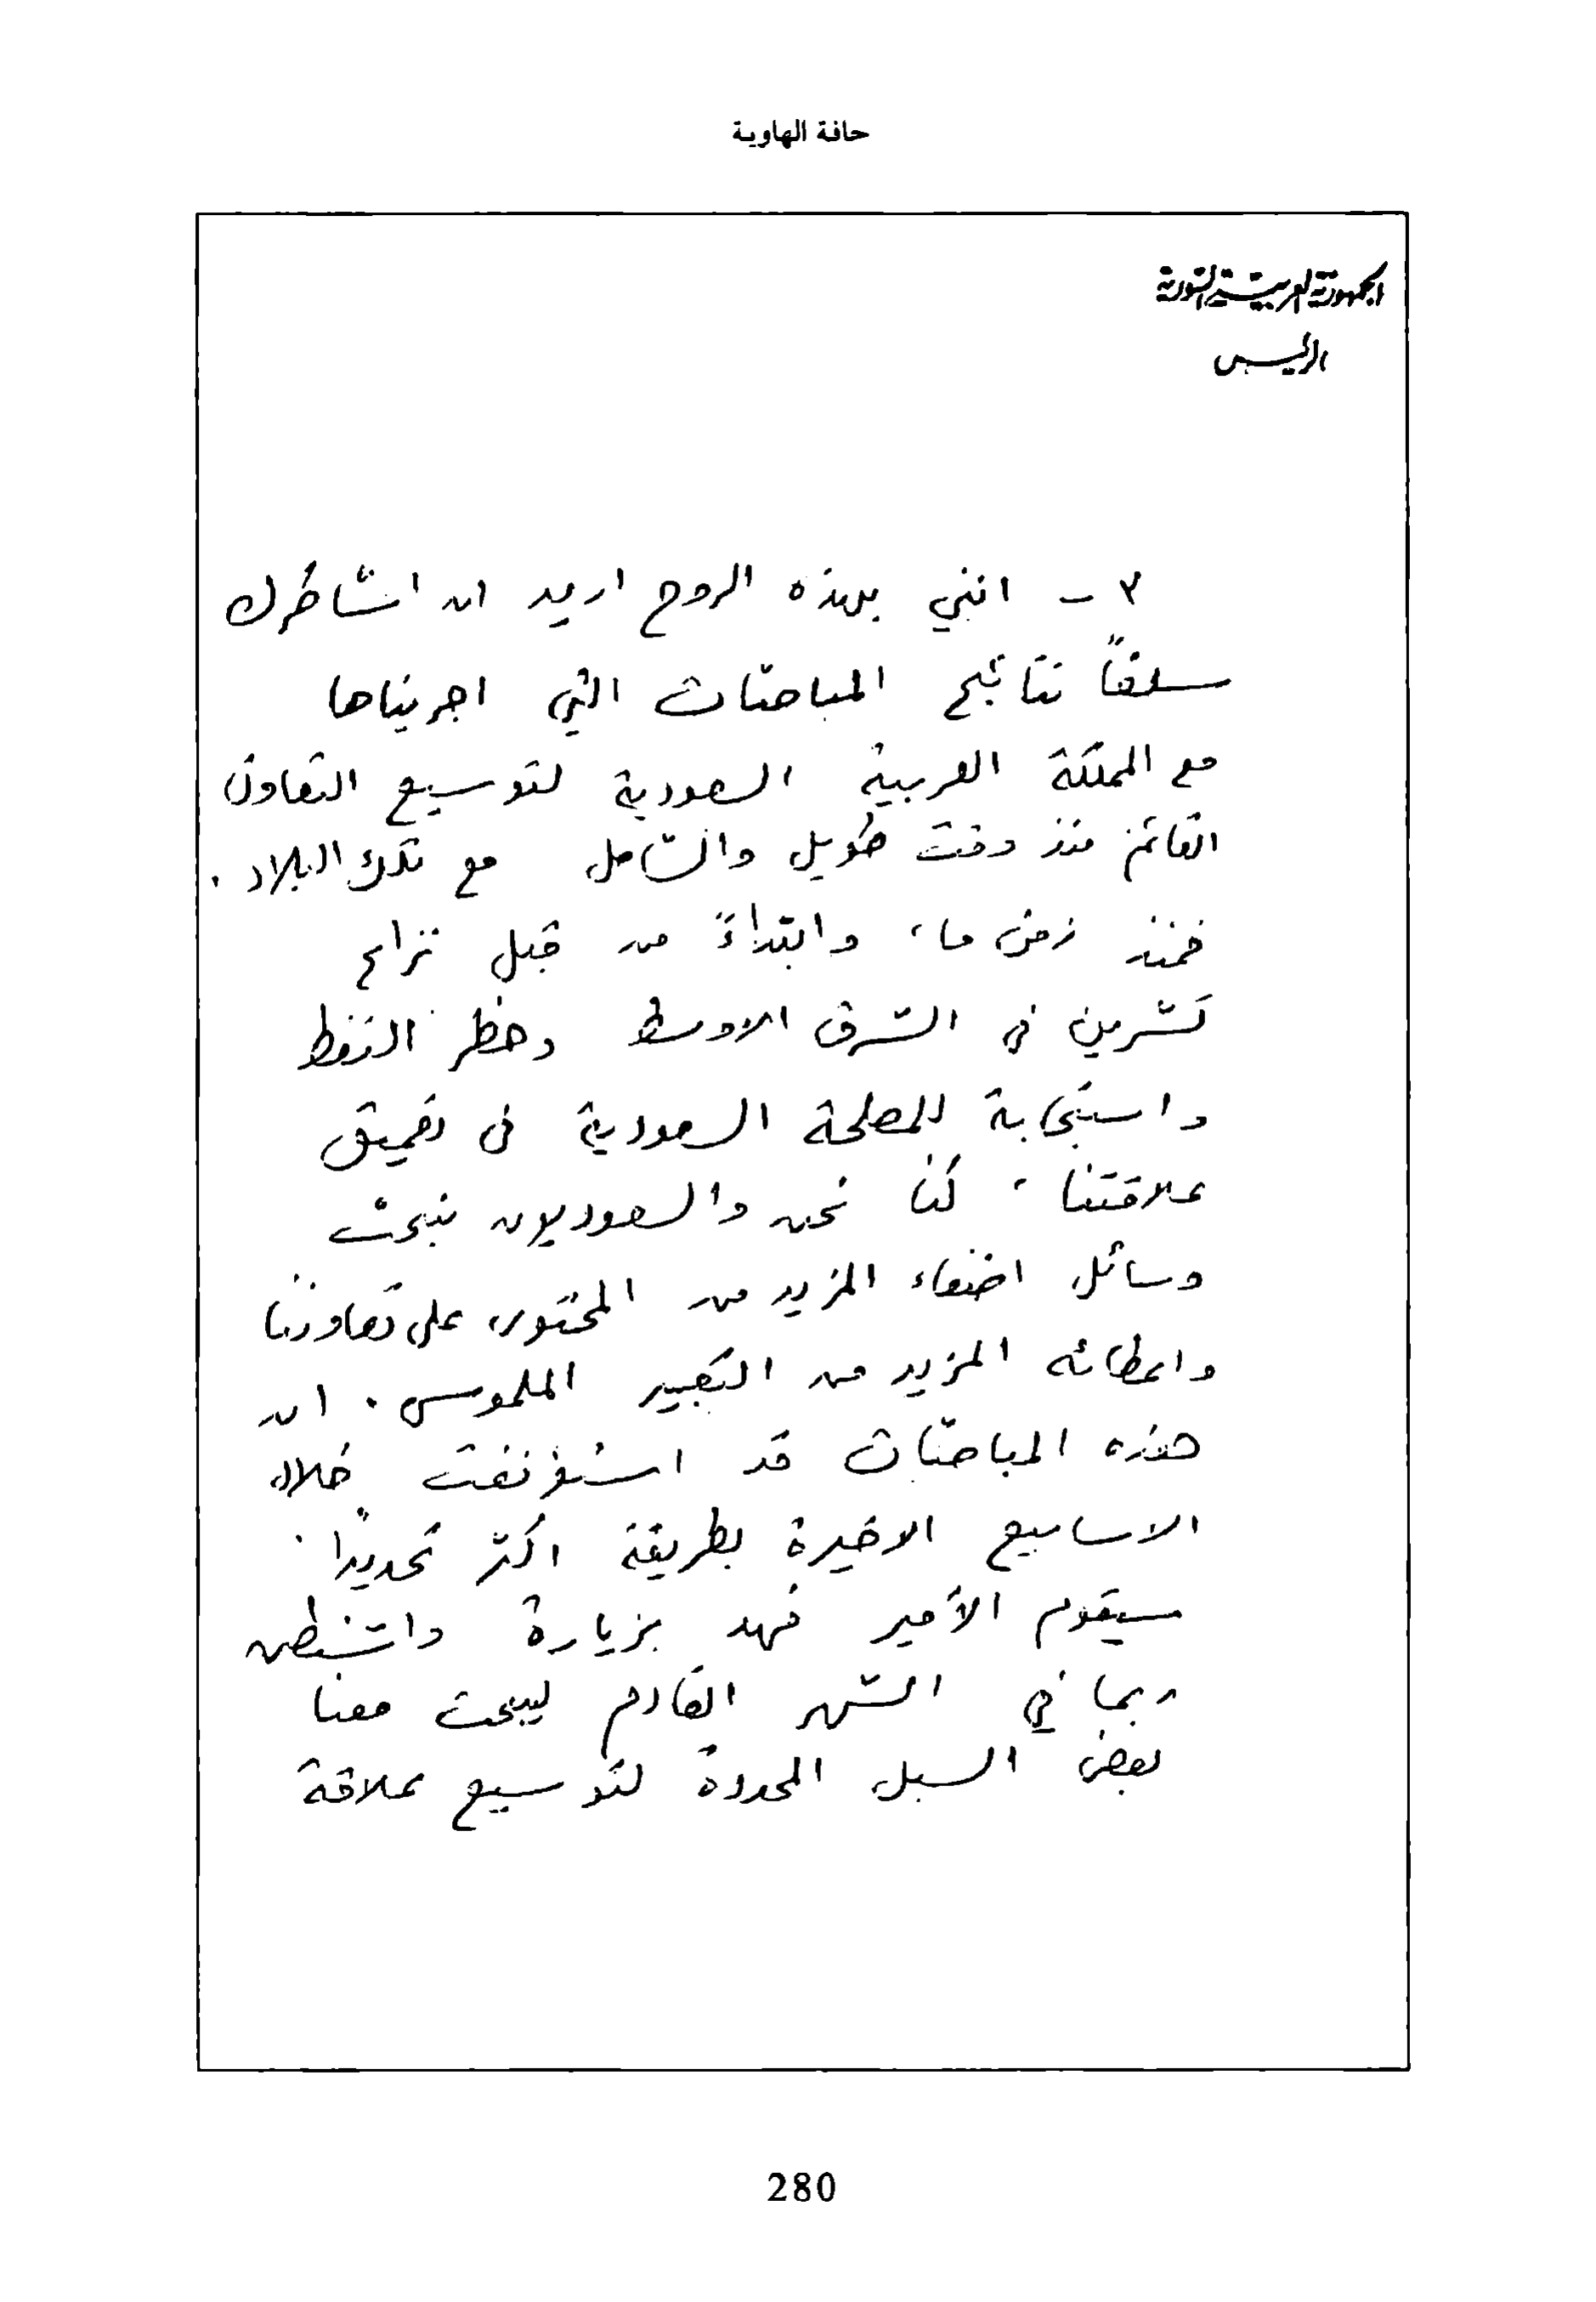 حافة الهاوية
الجمهورية العربية السورية
الرئيس
٣ - انني بهذه الروح اريد ان اشاطرك
سلفاً نتائج المباحثات التي اجريناها
مع المملكة العربية السعودية لتوسيع التعاون
القائم منذ وقت طويل والشامل مع تلك البلاد .
فمنذ زمن ما، وابتداءً من قبل نزاع
تشرين في الشرق الاوسط وحظر النفط
واستجابة للمصلحة السعودية في تعميق
علاقتنا ، كنا نحن والسعوديون نبحث
وسائل اضفاء المزيد من المحتوى على تعاوننا
واعطائه المزيد من التعبير الملموس . ان
هذه المباحثات قد استؤنفت خلال
الاسابيع الاخيرة بطريقة اكثر تحديداً .
سيقوم الأمير فهد بزيارة واشنطن
ربما في الشهر القادم ليبحث معنا
بعض السبل المحددة لتوسيع علاقة
280